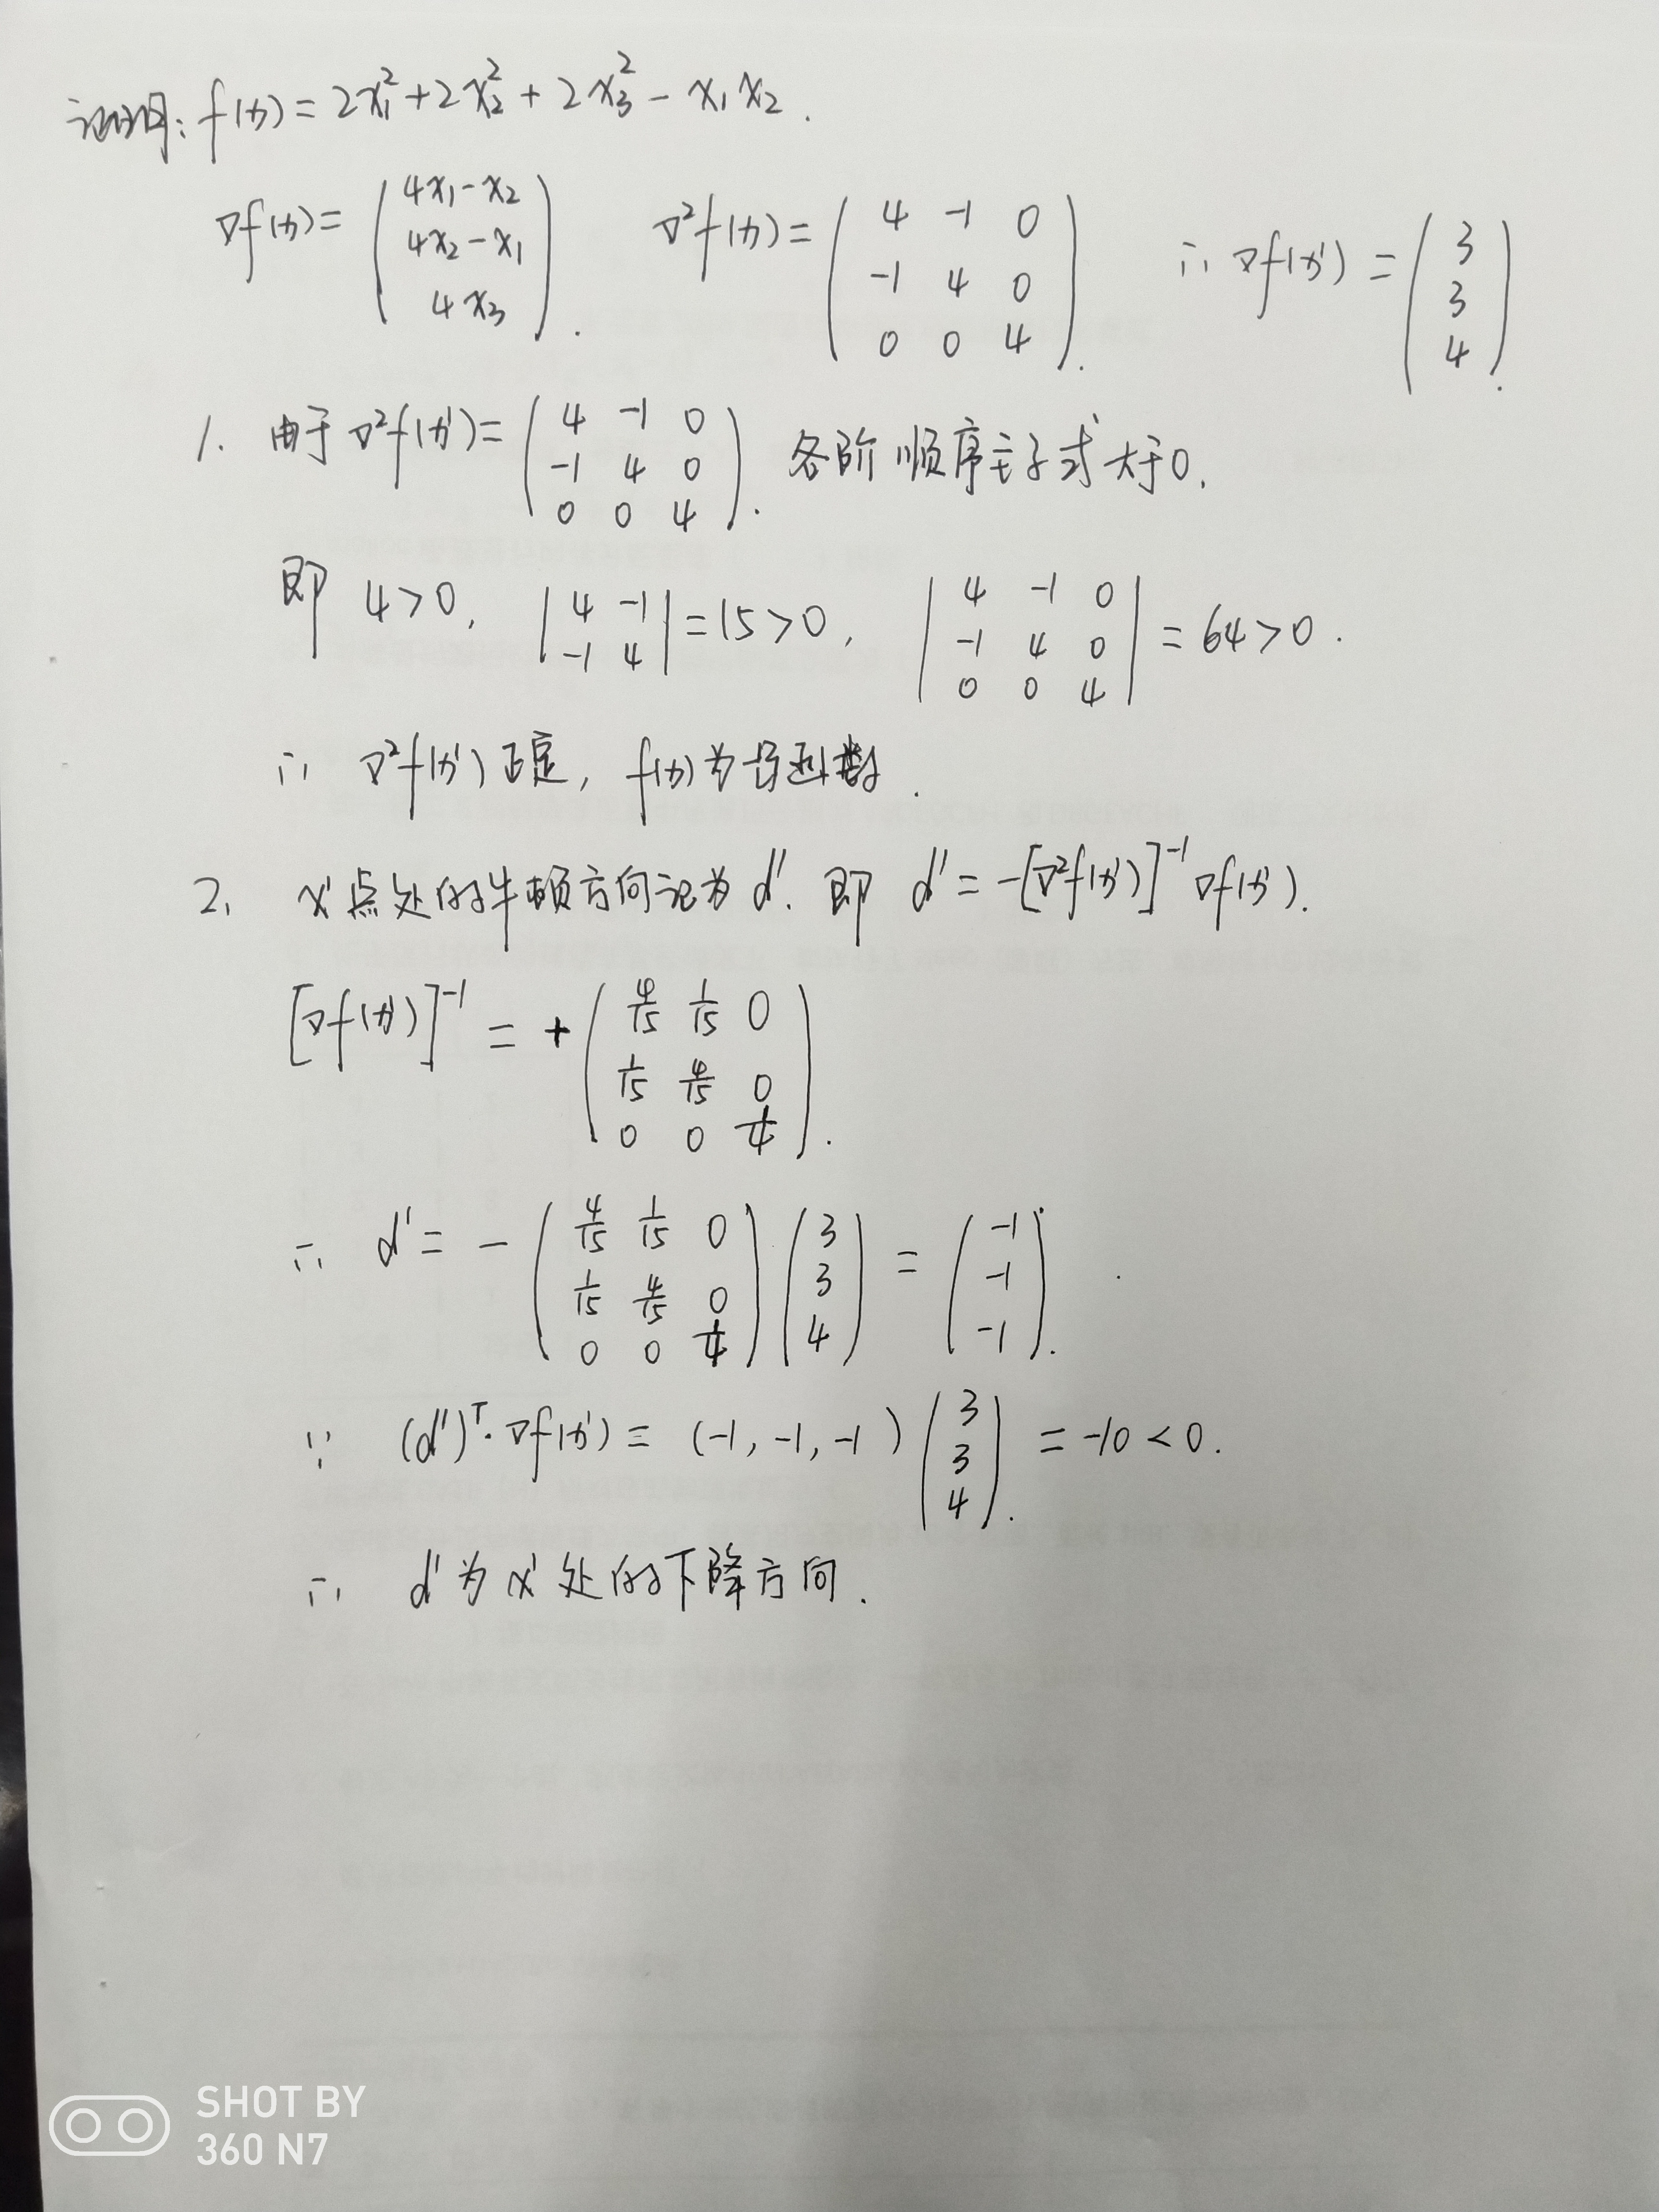 证明: f(x) = 2x₁² + 2x₂² + 2x₃² - x₁x₂.
∇f(x) = (4x₁-x₂ ; 4x₂-x₁ ; 4x₃). ∇²f(x) = (4 -1 0 ; -1 4 0 ; 0 0 4). ∴ ∇f(x¹) = (3 ; 3 ; 4).
1. 由于 ∇²f(x¹) = (4 -1 0 ; -1 4 0 ; 0 0 4). 各阶顺序主子式大于0,
即 4>0, |4 -1 ; -1 4| = 15>0, |4 -1 0 ; -1 4 0 ; 0 0 4| = 64>0.
∴ ∇²f(x¹) 正定, f(x)为凸函数.
2. x¹点处的牛顿方向记为 d¹. 即 d¹ = -[∇²f(x¹)]⁻¹∇f(x¹).
[∇f(x¹)]⁻¹ = +(4/15 1/15 0 ; 1/15 4/15 0 ; 0 0 1/4).
∴ d¹ = -(4/15 1/15 0 ; 1/15 4/15 0 ; 0 0 1/4)(3 ; 3 ; 4) = (-1 ; -1 ; -1).
∵ (d¹)ᵀ·∇f(x¹) = (-1, -1, -1)(3 ; 3 ; 4) = -10 < 0.
∴ d¹为x¹处的下降方向.
SHOT BY
360 N7